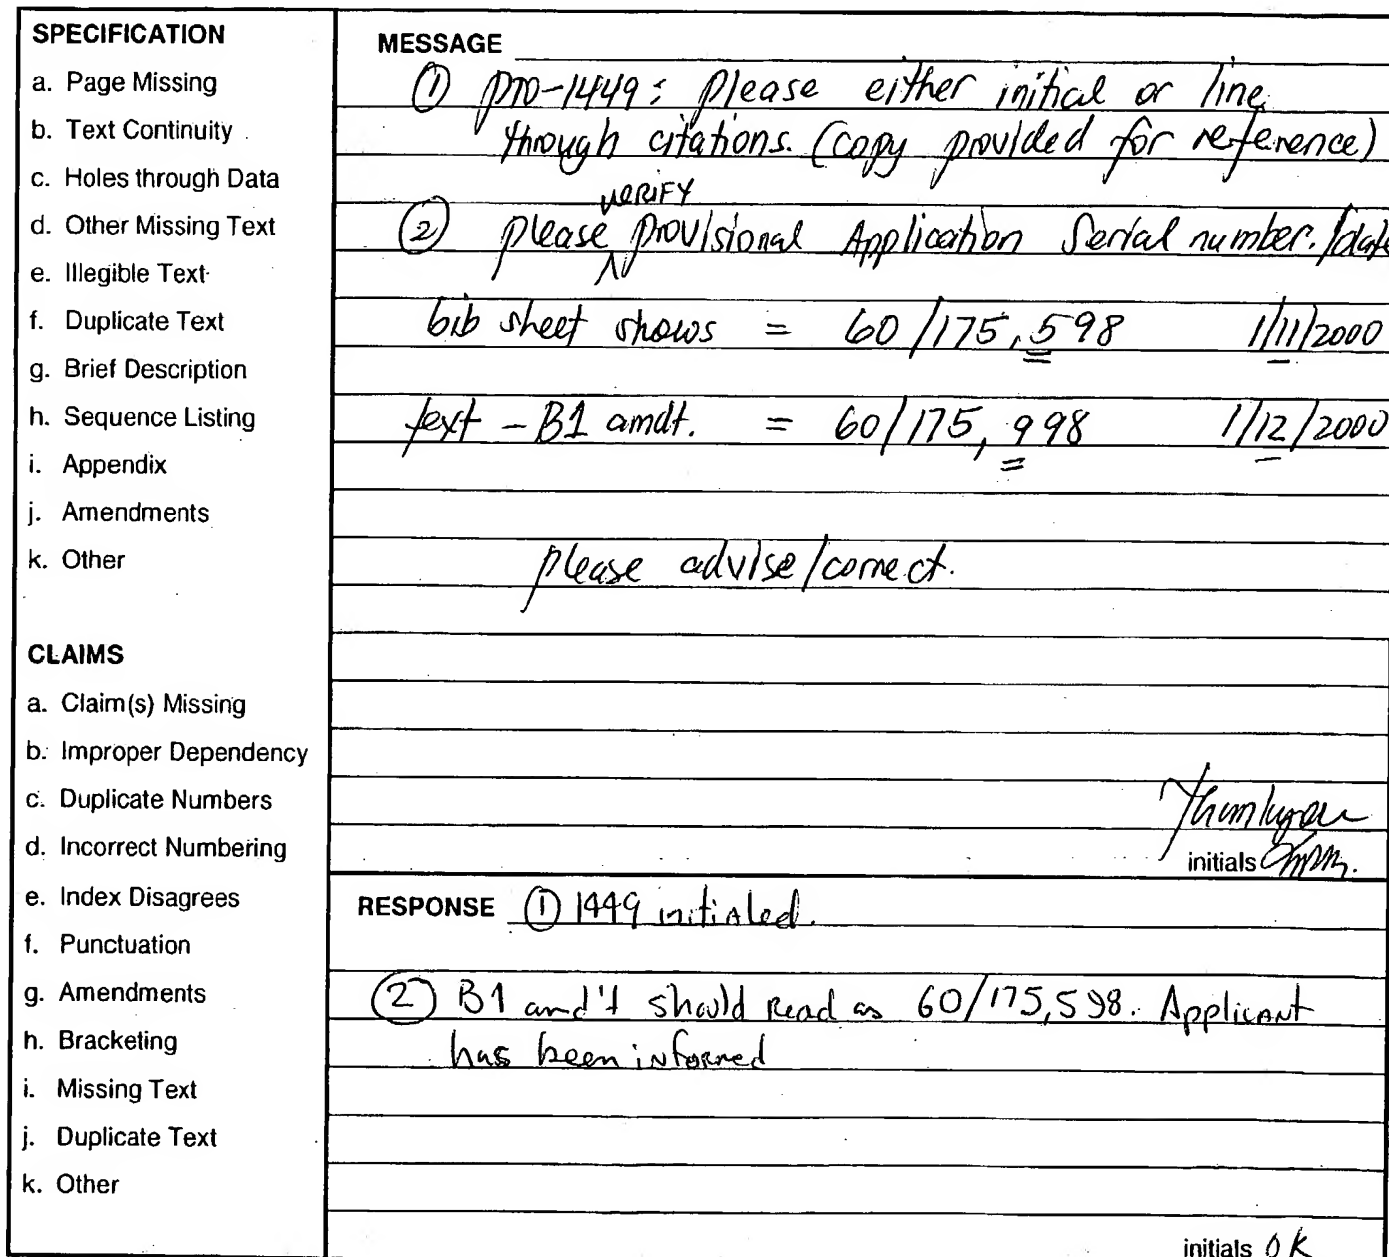 SPECIFICATION
a. Page Missing
b. Text Continuity
c. Holes through Data
d. Other Missing Text
e. Illegible Text
f. Duplicate Text
g. Brief Description
h. Sequence Listing
i. Appendix
j. Amendments
k. Other
CLAIMS
a. Claim(s) Missing
b. Improper Dependency
c. Duplicate Numbers
d. Incorrect Numbering
e. Index Disagrees
f. Punctuation
g. Amendments
h. Bracketing
i. Missing Text
j. Duplicate Text
k. Other
MESSAGE
① PTO-1449: Please either initial or line
through citations. (copy provided for reference)
② please VERIFY provisional Application Serial number./date
bib sheet shows = 60/175,598 1/11/2000
text - B1 amdt. = 60/175,998 1/12/2000
please advise/correct.
initials
RESPONSE ① 1449 initialed.
② B1 amd't should read as 60/175,598. Applicant
has been informed
initials OK